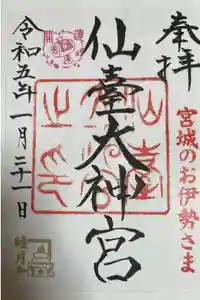 奉拝
宮城のお伊勢さま
仙臺大神宮
令和五年一月二十一日
睦月